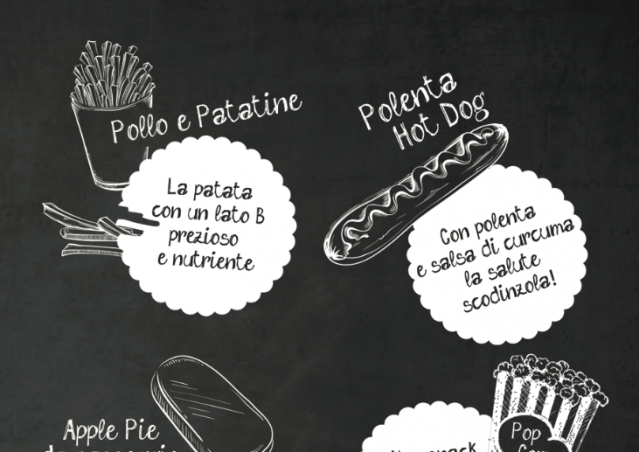 Pollo e Patatine
La patata
con un lato B
prezioso
e nutriente
Polenta
Hot Dog
Con polenta
e salsa di curcuma
la salute
scodinzola!
Apple Pie
Pop